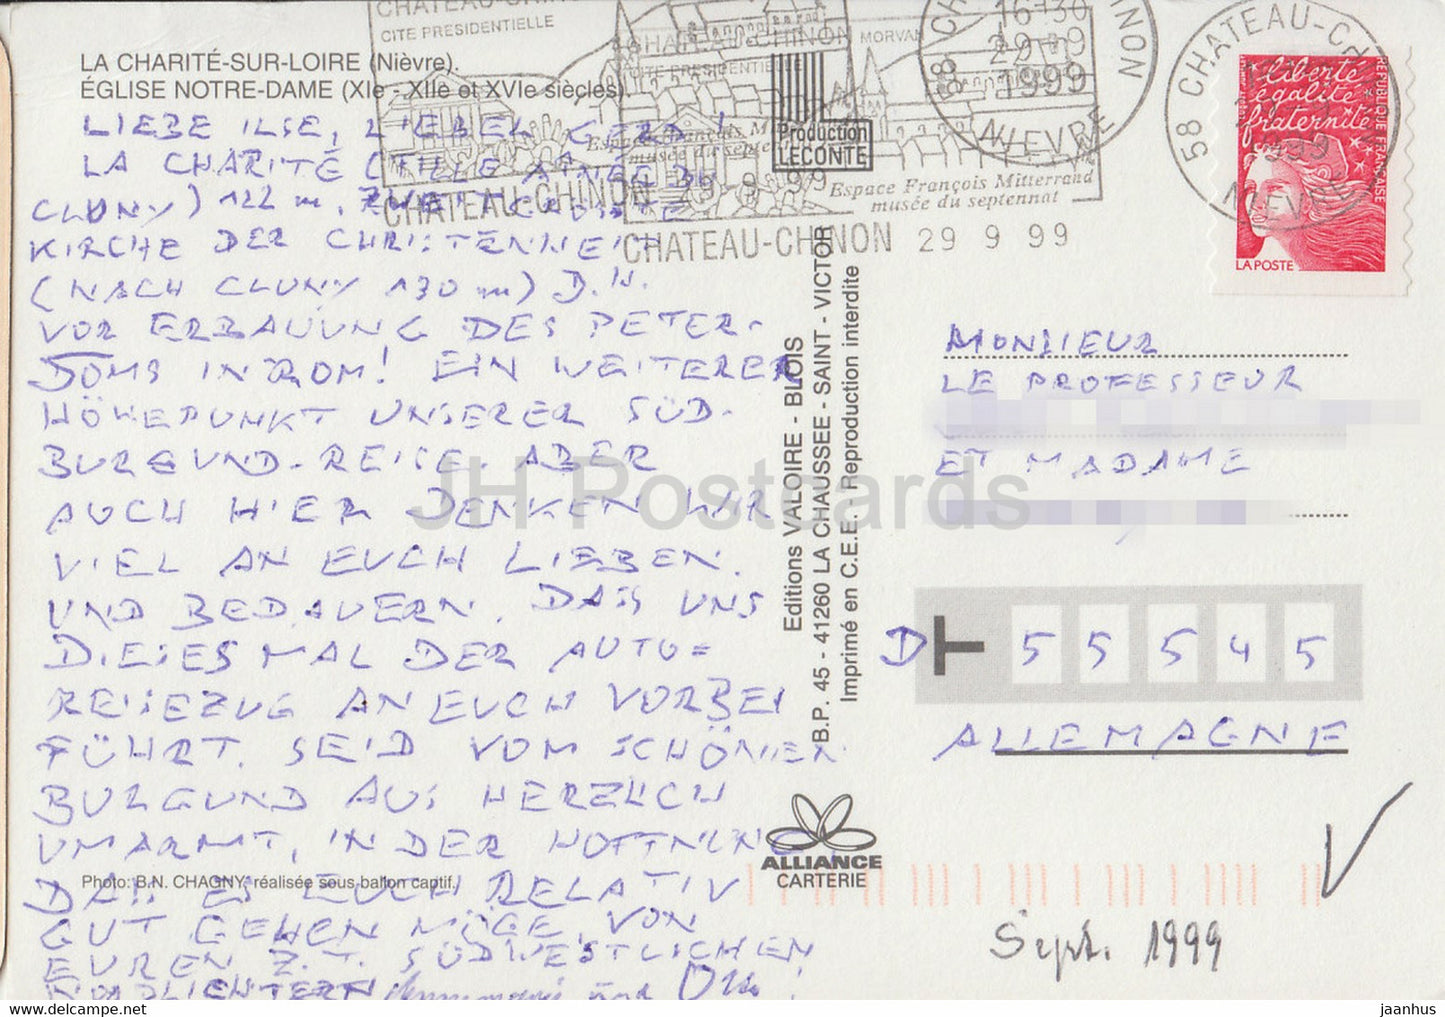 CHATEAU-CHINON
CITE PRESIDENTIELLE
LA CHARITÉ-SUR-LOIRE (Nièvre).
ÉGLISE NOTRE-DAME (XIe - XIIè et XVIe siècles).
CHATEAU-CHINON MORVAN
CITE PRESIDENTIELLE
Espace François Mitterrand
musée du septennat
CHATEAU-CHINON 29 9 99
CHATEAU-CHINON 29 9 99
16-30
29-9
1999
58 NIEVRE
58 CHATEAU-CHINON
1999
NIEVRE
liberté
égalité
fraternité
RÉPUBLIQUE FRANÇAISE
LA POSTE
LIEBE ILSE, LIEBER GERD!
LA CHARITÉ (FILLE AINÉE DE
CLUNY) 122 m, ZWEITGRÖSSTE
KIRCHE DER CHRISTENHEIT
(NACH CLUNY 130 m) D.H.
VOR ERBAUUNG DES PETER-
DOMS IN ROM! EIN WEITERER
HÖHEPUNKT UNSERER SÜD-
BURGUND-REISE. ABER
AUCH HIER DENKEN WIR
VIEL AN EUCH LIEBEN
UND BEDAUERN, DASS UNS
DIESES MAL DER AUTO=
REISEZUG AN EUCH VORBEI
FÜHRT. SEID VOM SCHÖNEN
BURGUND AUS HERZLICH
UMARMT, IN DER HOFFNUNG
DASS ES EUCH RELATIV
GUT GEHEN MÖGE, VON
EUREN Z.T. SÜDWESTLICHEN
NORDLICHTERN und
Photo: B.N. CHAGNY, réalisée sous ballon captif.
Production
LECONTE
Editions VALOIRE - BLOIS
B.P. 45 - 41260 LA CHAUSSEE - SAINT - VICTOR
Imprimé en C.E.E. - Reproduction interdite
ALLIANCE
CARTERIE
MONSIEUR
LE PROFESSEUR
ET MADAME
D 55545
ALLEMAGNE
Sept. 1999
JH Postcards
www.hippostcard.com/store/jh-postcards/online
jaanhus